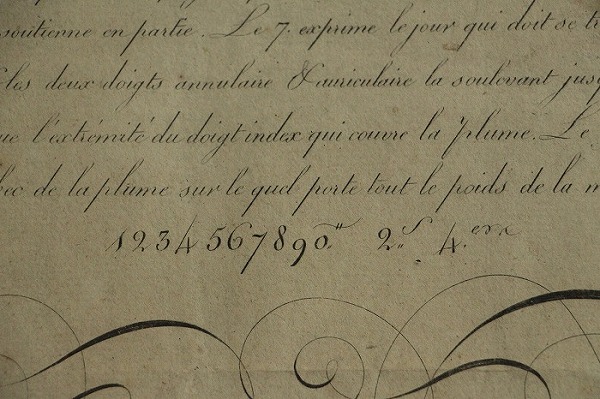 soutienne en partie. Le 7. exprime le jour qui doit se
les deux doigts annulaire & auriculaire la soulevant
l'extrémité du doigt index qui couvre la plume. Le
de la plume sur le quel porte tout le poids de la
1234567890 2 4